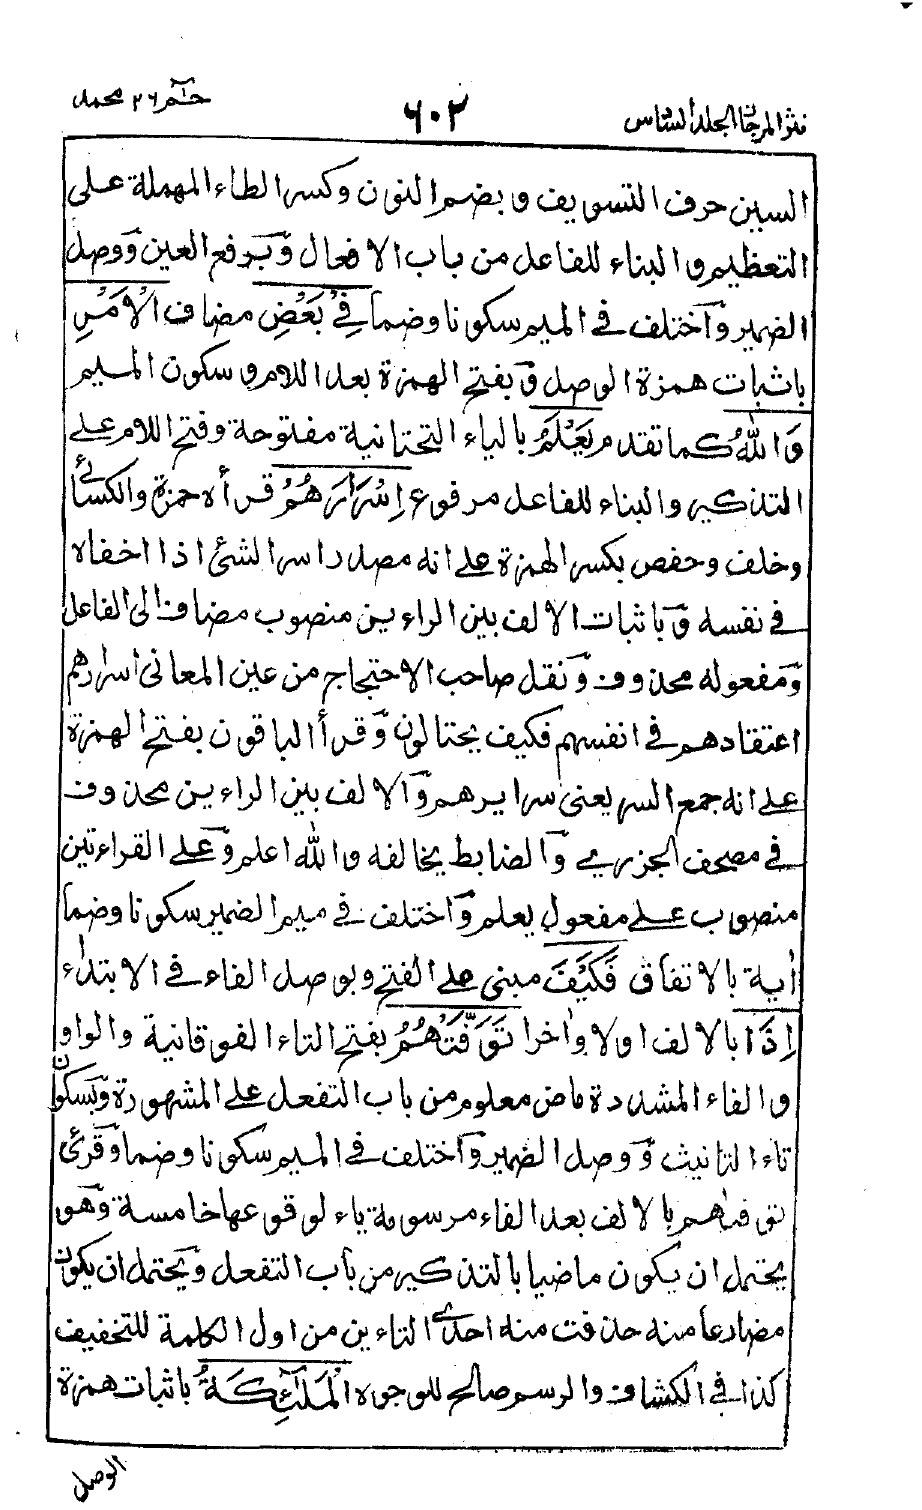 نثر المرجان الجلد السادس
٦٠٢
حٰم ٢٦ محمد
السين حرف التسويف و بضم النون وكسر الطاء المهملة على
التعظيم و البناء للفاعل من باب الافعال و برفع العين و وصل
الضمير و اختلف في الميم سكونا وضما فِي بَعْضِ مضاف الْاَمْرِ
باثبات همزة الوصل و بفتح الهمزة بعد اللام و سكون الميم
وَاللّٰهُ كما تقدم يَعْلَمُ بالياء التحتانية مفتوحة وفتح اللام على
التذكير والبناء للفاعل مرفوع اِسْرَارَهُمْ قرأه حمزة والكسائي
وخلف وحفص بكسر الهمزة على انه مصدر اسر الشئ اذا اخفاه
في نفسه و باثبات الالف بين الراءين منصوب مضاف الى الفاعل
ومفعوله محذوف و نقل صاحب الاحتجاج من عين المعاني اسرارهم
اعتقادهم في انفسهم فكيف يحتالون و قرأ الباقون بفتح الهمزة
على انه جمع السر يعني اسرايرهم و الالف بين الراءين محذوف
في مصحف الجزري و الضابط يخالفه والله اعلم و على القراءتين
منصوب على مفعول يعلم و اختلف في ميم الضمير سكونا وضما
اٰية بالاتفاق فَكَيْفَ مبني على الفتح و بوصل الفاء في الابتداء
اِذَا بالالف اولا واٰخرا تَوَفَّتْهُمُ بفتح التاء الفوقانية والواو
والفاء المشددة ماض معلوم من باب التفعل على المشهورة وبسكون
تاء التانيث و وصل الضمير و اختلف في الميم سكونا وضما و قرئ
توفىٰهم بالالف بعد الفاء مرسومة ياء لوقوعها خامسة وهو
يحتمل ان يكون ماضيا بالتذكير من باب التفعل و يحتمل ان يكون
مضارعا منه حذفت منه احدى التاءين من اول الكلمة للتخفيف
كذا في الكشاف والرسم صالح للوجوه الْمَلٰٓئِكَةُ باثبات همزة
الوصل